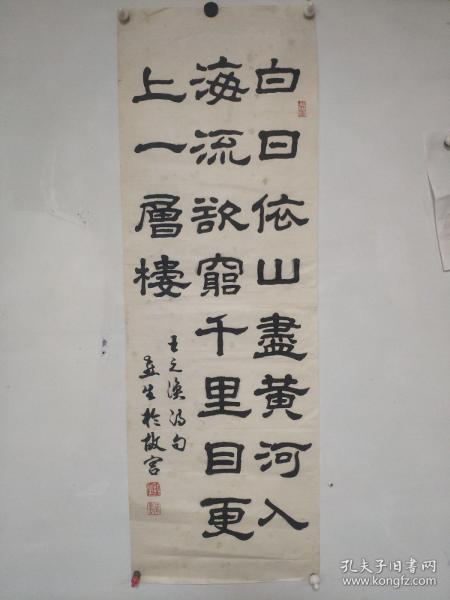 白日依山盡黄河入
海流欲窮千里目更
上一層樓
王之渙詩句
生於故宮
孔夫子旧书网
www.kongfz.com